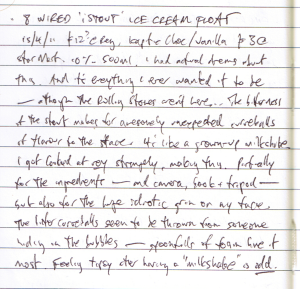 · 8 WIRED 'iSTOUT' ICE CREAM FLOAT
15/4/11 £12? Kaptie Choc/Vanilla p30
stormist. 10% 500ml, i had actual dreams about
this. And it's everything i ever wanted it to be
— although the Rolling Stones aren't here... The bitterness
of the stout makes for awesomely unexpected curveballs
of flavour to the place. It's like a grown-up milkshake.
I got looked at very strangely, making this. Partially
for the ingredients — and camera, book & tripod —
but also for the huge idiotic grin on my face.
The bitter curveballs seem to be thrown from someone
hiding in the bubbles — spoonfuls of foam have it
most. Feeling tipsy after having a "milkshake" is odd.